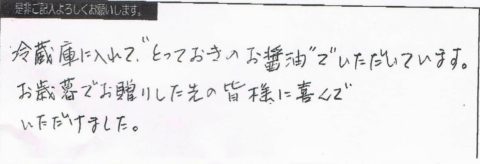 是非ご記入よろしくお願いします。
冷蔵庫に入れて、"とっておきのお醤油"でいただいています。
お歳暮でお贈りした先の皆様に喜んで
いただけました。